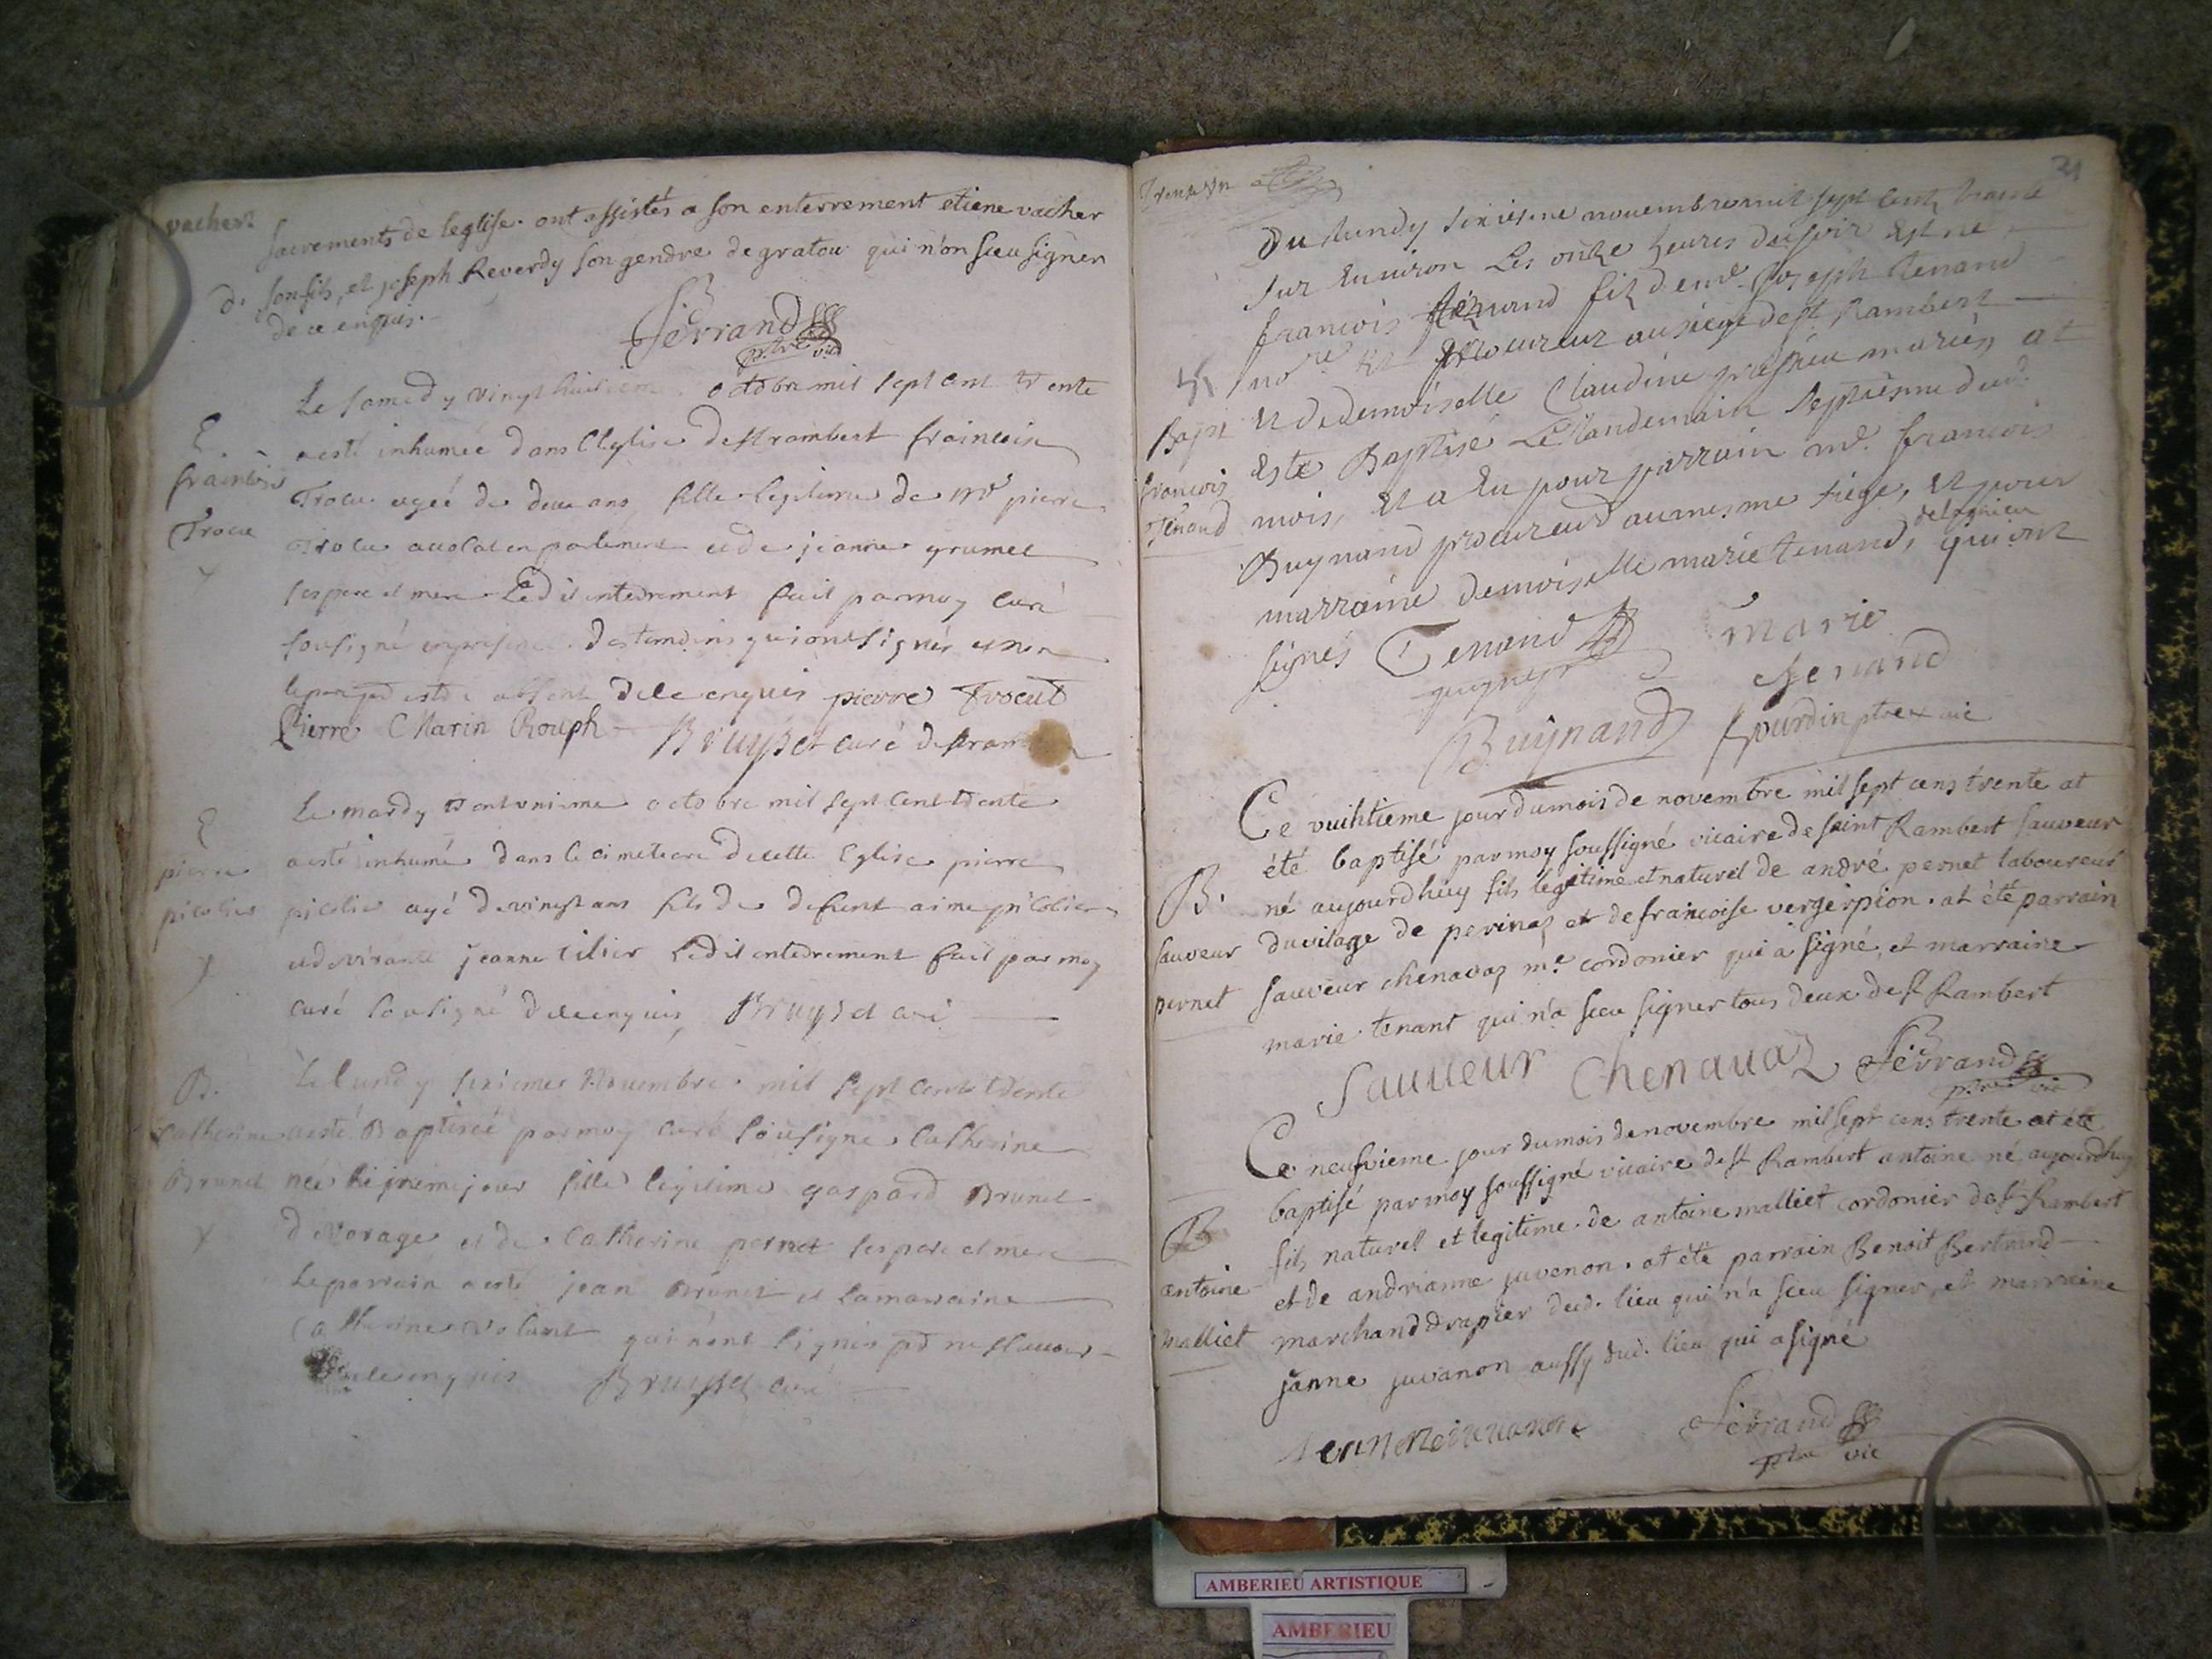 vacher
sacrements de leglise. ont assistés a son enterrement etiene vacher
d. son fils, et joseph Reverdy son gendre de gratou qui n'on sceu signer
de ce enquis.
ferrand
ptre vic
Le samedy vingt huitieme octobre mil sept cent trente
E
a esté inhumée dans l'Eglise de st rambert francoise
francoise
Trocu agée de deux ans fille legitime de mr pierre
Trocu
Trocu avocat en parlement et de jeanne grumet
ses pere et mere Ledit enterrement fait par moy curé
sousigné en presence des temoins qui ont signés et non
le absent de ce enquis pierre Trocut
Pierre Marin Rouph Bruyset curé de st ram
Le mardy trent unieme octobre mil sept cent trente
E
a esté inhumé dans le cimetiere de cette Eglise pierre
pierre
picolier
picolier agé de vingt ans fils de defunt aime picolier
et de vivante jeanne tilier Ledit enterrement fait par moy
curé sousigné de ce enquis Bruyset curé
B.
Le lundy sixieme Novembre mil sept cent trente
catherine
a esté Baptisée par moy curé sousigné Catherine
Brunet
née le jour fille legitime gaspard Brunet
de vorage et de Catherine pernet ses pere et mere
Le parrain a esté jean Brunet et la marraine
Catherine volant qui n'ont signés pr ne sçavoir
de ce enquis Bruyset curé
Trente Un
31
Du Lundy sixiesme novembre mil sept cent trente
sur Environ Les onze heures du soir Est né
francois tenand fils de mr. Joseph tenand
nore. Et procureur au siege de st Rambert
Bapt
Et de demoiselle Claudine mariés at
Este Baptisé Le landemain septiesme dud.
francois
Tenand
mois, Et a Eu pour parrain mr. francois
Buynand procureur au mesme siege, Et pour
marraine demoiselle marie tenand, qui ont
signés Tenand
Marie
tenand
Buynand Gourdin ptre et vic
Ce vuihtieme jour du mois de novembre mil sept cens trente at
été baptisé par moy soussigné vicaire de saint Rambert sauveur
B.
né aujourdhuy fils legitime et naturel de andre pernet laboureur
sauveur
du vilage de perinaz et de francoise vergerpion. at été parrain
pernet
sauveur chenavaz me. cordonier qui a signé, et marraine
marie tenant qui n'a sceu signer tous deux de st Rambert
sauveur Chenavaz ferrand
ptre vic
Ce neufvieme jour du mois de novembre mil sept cens trente at été
baptisé par moy soussigné vicaire de st Rambert antoine né aujourdhuy
B
fils naturel et legitime de antoine malliet cordonier de st Rambert
antoine
et de andrianne juvenon. at été parrain Benoit Bertrand
malliet
marchand drapier dud. lieu qui n'a sceu signer, et marraine
janne juvanon aussy dud. lieu qui a signé
ferrand
ptre vic
AMBERIEU ARTISTIQUE
AMBERIEU